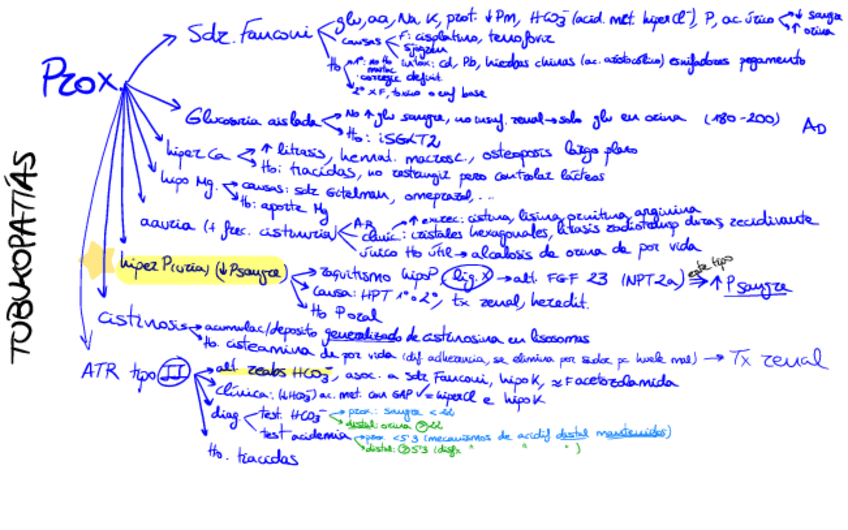 TUBULOPATÍAS
Prox
Sdr. Fanconi
glu, aa, Na, K, prot. ↓Pm, HCO3⁻ (acid. met. hiperCl⁻), P, ac. úrico ↓ sangre ↑ orina
causas F: cisplatino, tenofovir
Sjögren
intox: Cd, Pb, hierbas chinas (ac. aristolóquico) esnifadores pegamento
tto 1º: no tto
corregir deficit
2º x F, toxico o enf base
Glucosuria aislada No ↑ glu sangre, no insuf. renal → solo glu en orina (180-200) AD
tto: iSGLT2
hiper Ca ↑ litiasis, hemat. macrosc., osteoporosis largo plazo
tto: tiacidas, no restringir pero controlar lácteos
hipo Mg. causas: sdr Gitelman, omeprazol, ...
tto: aporte Mg
aauria (+ frec. cistinuria) AR
↑ excrec: cistina, lisina, ornitina, arginina
clinic: cristales hexagonales, litiasis radiotransp duras, recidivante
único tto útil → alcalosis de orina de por vida
hiper Pturia) (↓Psangre) raquitismo hipoP, lig. X → alt. FGF 23 (NPT2a) este tipo ⇒ ↑ P sangre
causa: HPT 1º o 2º, tx renal, heredit.
tto P oral
cistinosis → acumulac/deposito generalizado de cistinosina en lisosomas
tto. cisteamina de por vida (dif adherencia, se elimina por sudor, pc huele mal) → Tx renal
ATR tipo II alt. reabs HCO3⁻, asoc. a sdr Fanconi, hipoK, ≈ F acetozolamida
clínica: (↓HCO3⁻) ac. met. con GAP ✓ = hiperCl e hipoK
diag test. HCO3⁻ → prox.: sangre < 22
distal: orina > 22
test acidemia → prox. < 5'3 (mecanismos de acidif distal mantenidos)
distal: > 5'3 (disfx " " " )
tto. tiacidas